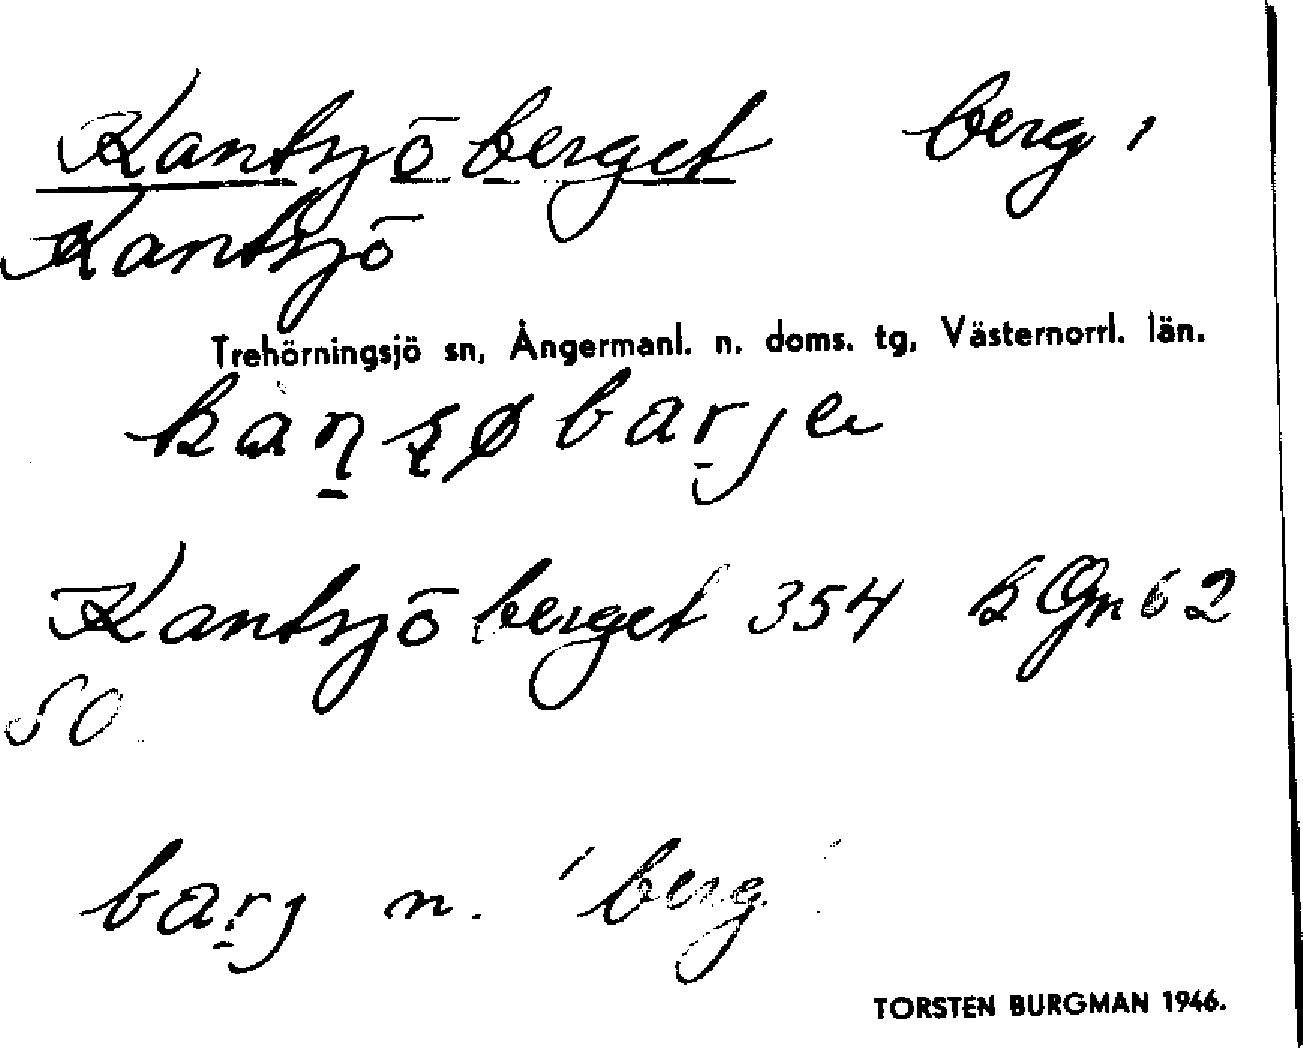 Kantsjöberget berg i
Kantsjö
Trehörningsjö sn, Ångermanl. n. doms. tg, Västernorrl. län.
Kantsjöberget 354 k Gn 62
SO
barj n. 'berg'
TORSTEN BURGMAN 1946.